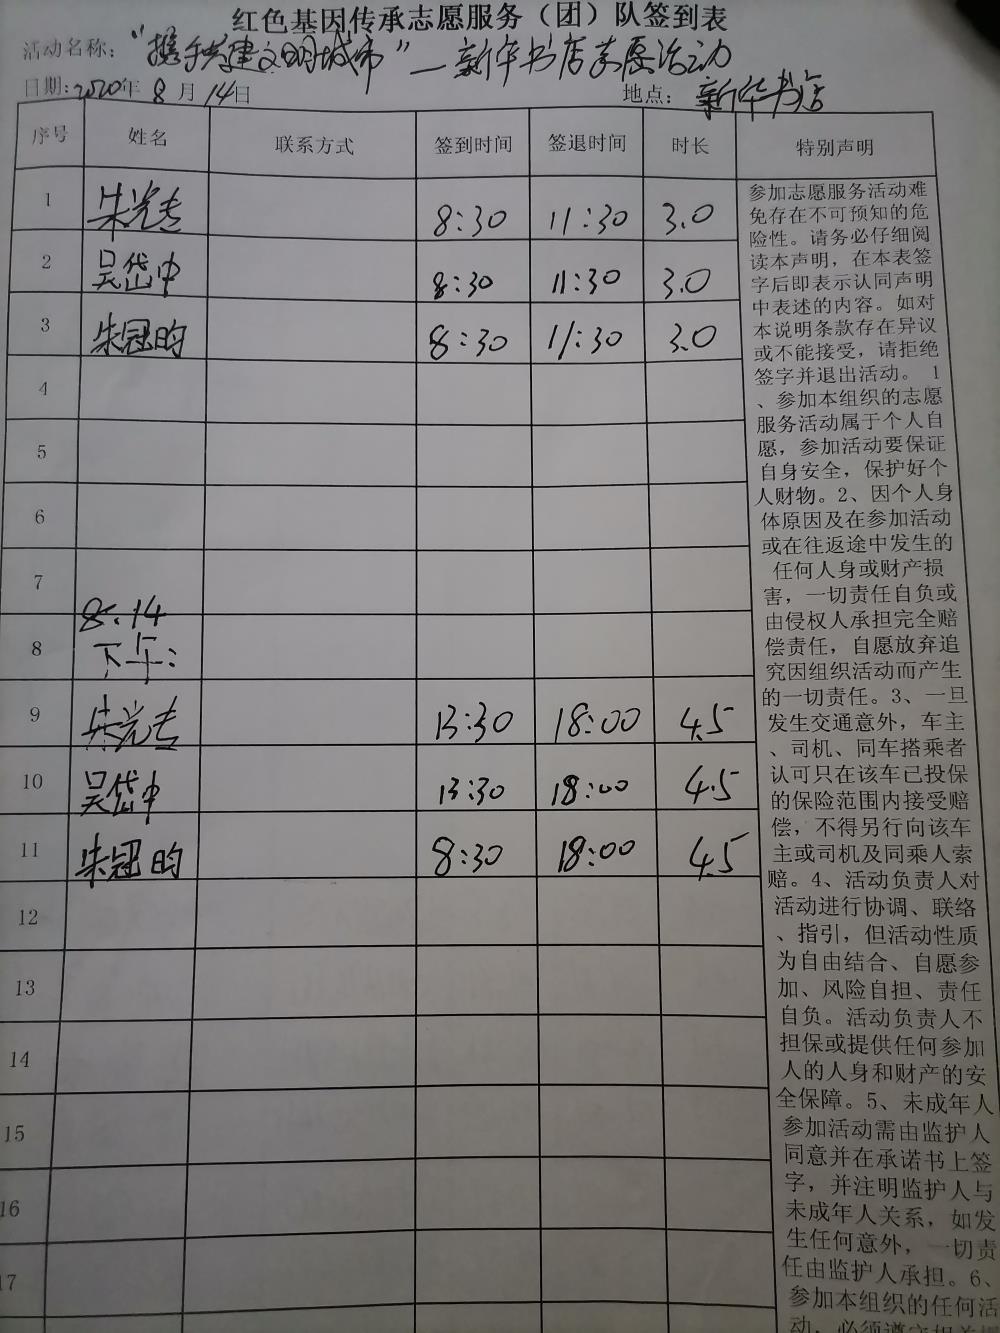 红色基因传承志愿服务（团）队签到表
活动名称："携手共建文明城市"—新华书店志愿活动
日期：2020年 8 月 14日 地点：新华书店
序号 姓名 联系方式 签到时间 签退时间 时长 特别声明
1 朱光专 8:30 11:30 3.0
2 吴岱中 8:30 11:30 3.0
3 朱冠昀 8:30 11:30 3.0
4
5
6
7
8 8.14
下午：
9 朱光专 13:30 18:00 4.5
10 吴岱中 13:30 18:00 4.5
11 朱冠昀 8:30 18:00 4.5
12
13
14
15
16
17
参加志愿服务活动难
免存在不可预知的危
险性。请务必仔细阅
读本声明，在本表签
字后即表示认同声明
中表述的内容。如对
本说明条款存在异议
或不能接受，请拒绝
签字并退出活动。1
、参加本组织的志愿
服务活动属于个人自
愿，参加活动要保证
自身安全，保护好个
人财物。2、因个人身
体原因及在参加活动
或在往返途中发生的
任何人身或财产损
害，一切责任自负或
由侵权人承担完全赔
偿责任，自愿放弃追
究因组织活动而产生
的一切责任。3、一旦
发生交通意外，车主
、司机、同车搭乘者
认可只在该车已投保
的保险范围内接受赔
偿，不得另行向该车
主或司机及同乘人索
赔。4、活动负责人对
活动进行协调、联络
、指引，但活动性质
为自由结合、自愿参
加、风险自担、责任
自负。活动负责人不
担保或提供任何参加
人的人身和财产的安
全保障。5、未成年人
参加活动需由监护人
同意并在承诺书上签
字，并注明监护人与
未成年人关系，如发
生任何意外，一切责
任由监护人承担。6、
参加本组织的任何活
动，必须遵守